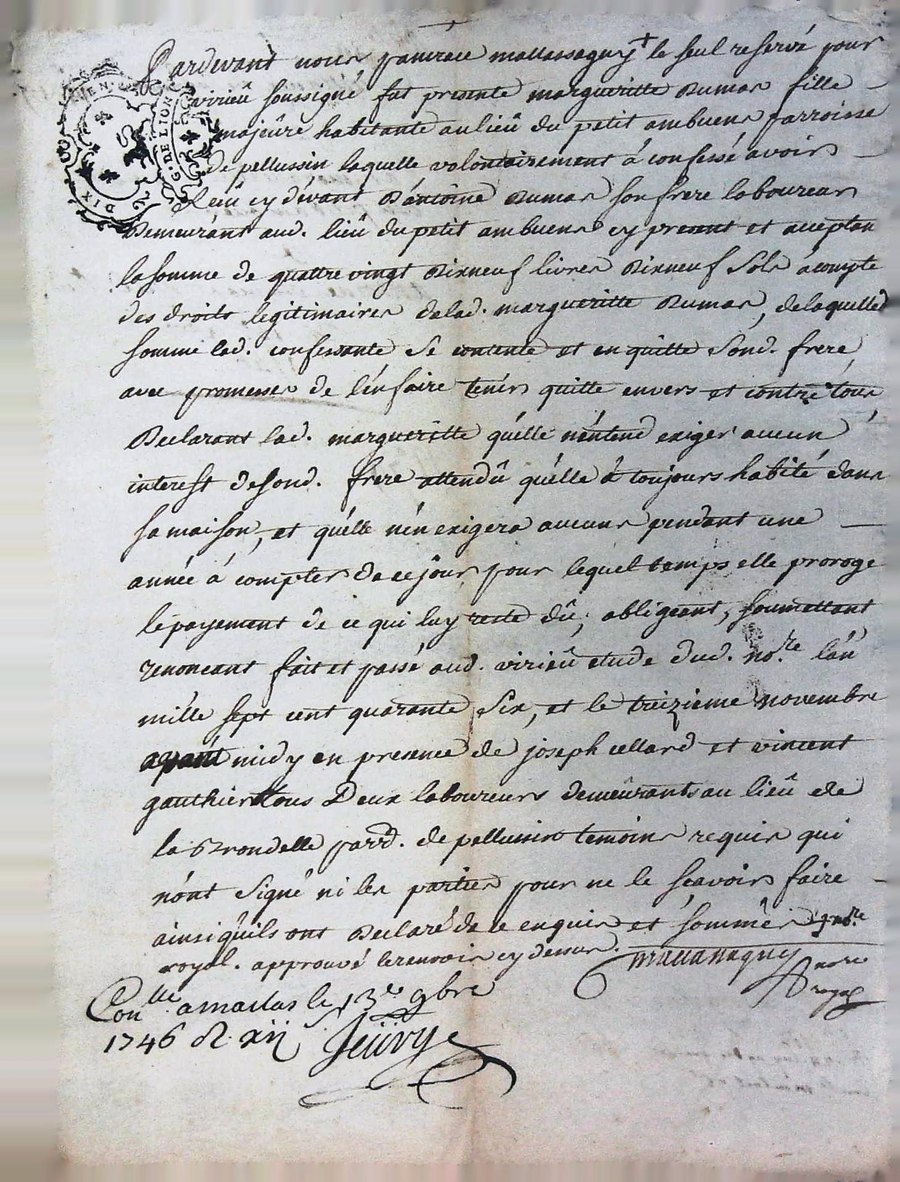 Pardevant nous pancrace mallassagny + le seul reservé pour
virieu soussigné fut presente margueritte Dumas fille
majeure habitante au lieu du petit ambuens parroisse
de pellussin laquelle volontairement à confessé avoir
Receu cy dévant D'antoine Dumas son frere laboureur
Demeurant aud. lieu du petit ambuens cy present et aceptan
la somme de quattre vingt Dixneuf livres Dixneuf sols acompte
des droits legitimaires de lad. margueritte Dumas, de laquelle
somme lad. confessante se contente et en quitte sond. frere,
avec promesses de l'en faire tenir quitte envers et contre tous
Declarant lad. margueritte qu'elle n'entend exiger aucun
interest de sond. frere attendu qu'elle à toujours habité dans
sa maison, et qu'elle n'en exigera aucuns pendant une
année à compter de ce jour pour lequel temps elle proroge
le payement de ce qui luy reste dû; obligeant, soumettant
renonceant fait et passé aud. virieu etude dud. nore. l'an
mille sept cent quarante six, et le treizieme novembre
avant midy en presence de joseph cellard et vincent
gauthier tous Deux laboureurs demeurants au lieu de
la Brondelle parrd. de pellussin temoins requis qui
n'ont signé ni les parties pour ne le scavoir faire
ainsi qu'ils ont Declaré de ce enquis et sommés
royal. approuvé le renvoir cy dessus. mallassagny
nore
royal
Conlle amallas le 13e 9bre
1746 R xii
DIX DEN.
G. DE LION